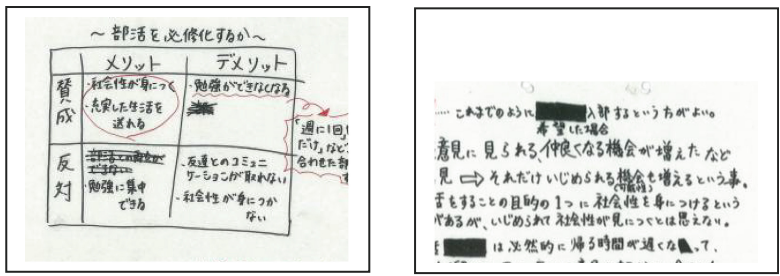 ～部活を必修化するか～
メリット デメリット
賛成
・社会性が身につく
・充実した生活を
送れる
・勉強ができなくなる
「週に1回
だけ」など
合わせた部
反対
・勉強に集中
できる
・友達とのコミュニ
ケーションが取れない
・社会性が身につか
ない
……これまでのように 入部するという方がよい。
希望した場合
意見に見られる、仲良くなる機会が増えたなど
見 ⇨ それだけいじめられる機会も増えるという事。
(可能性)
をすることの目的の1つに社会性を身につけるという
があるが、いじめられて社会性が見につくとは思えない。
は必然的に帰る時間が遅くな って、